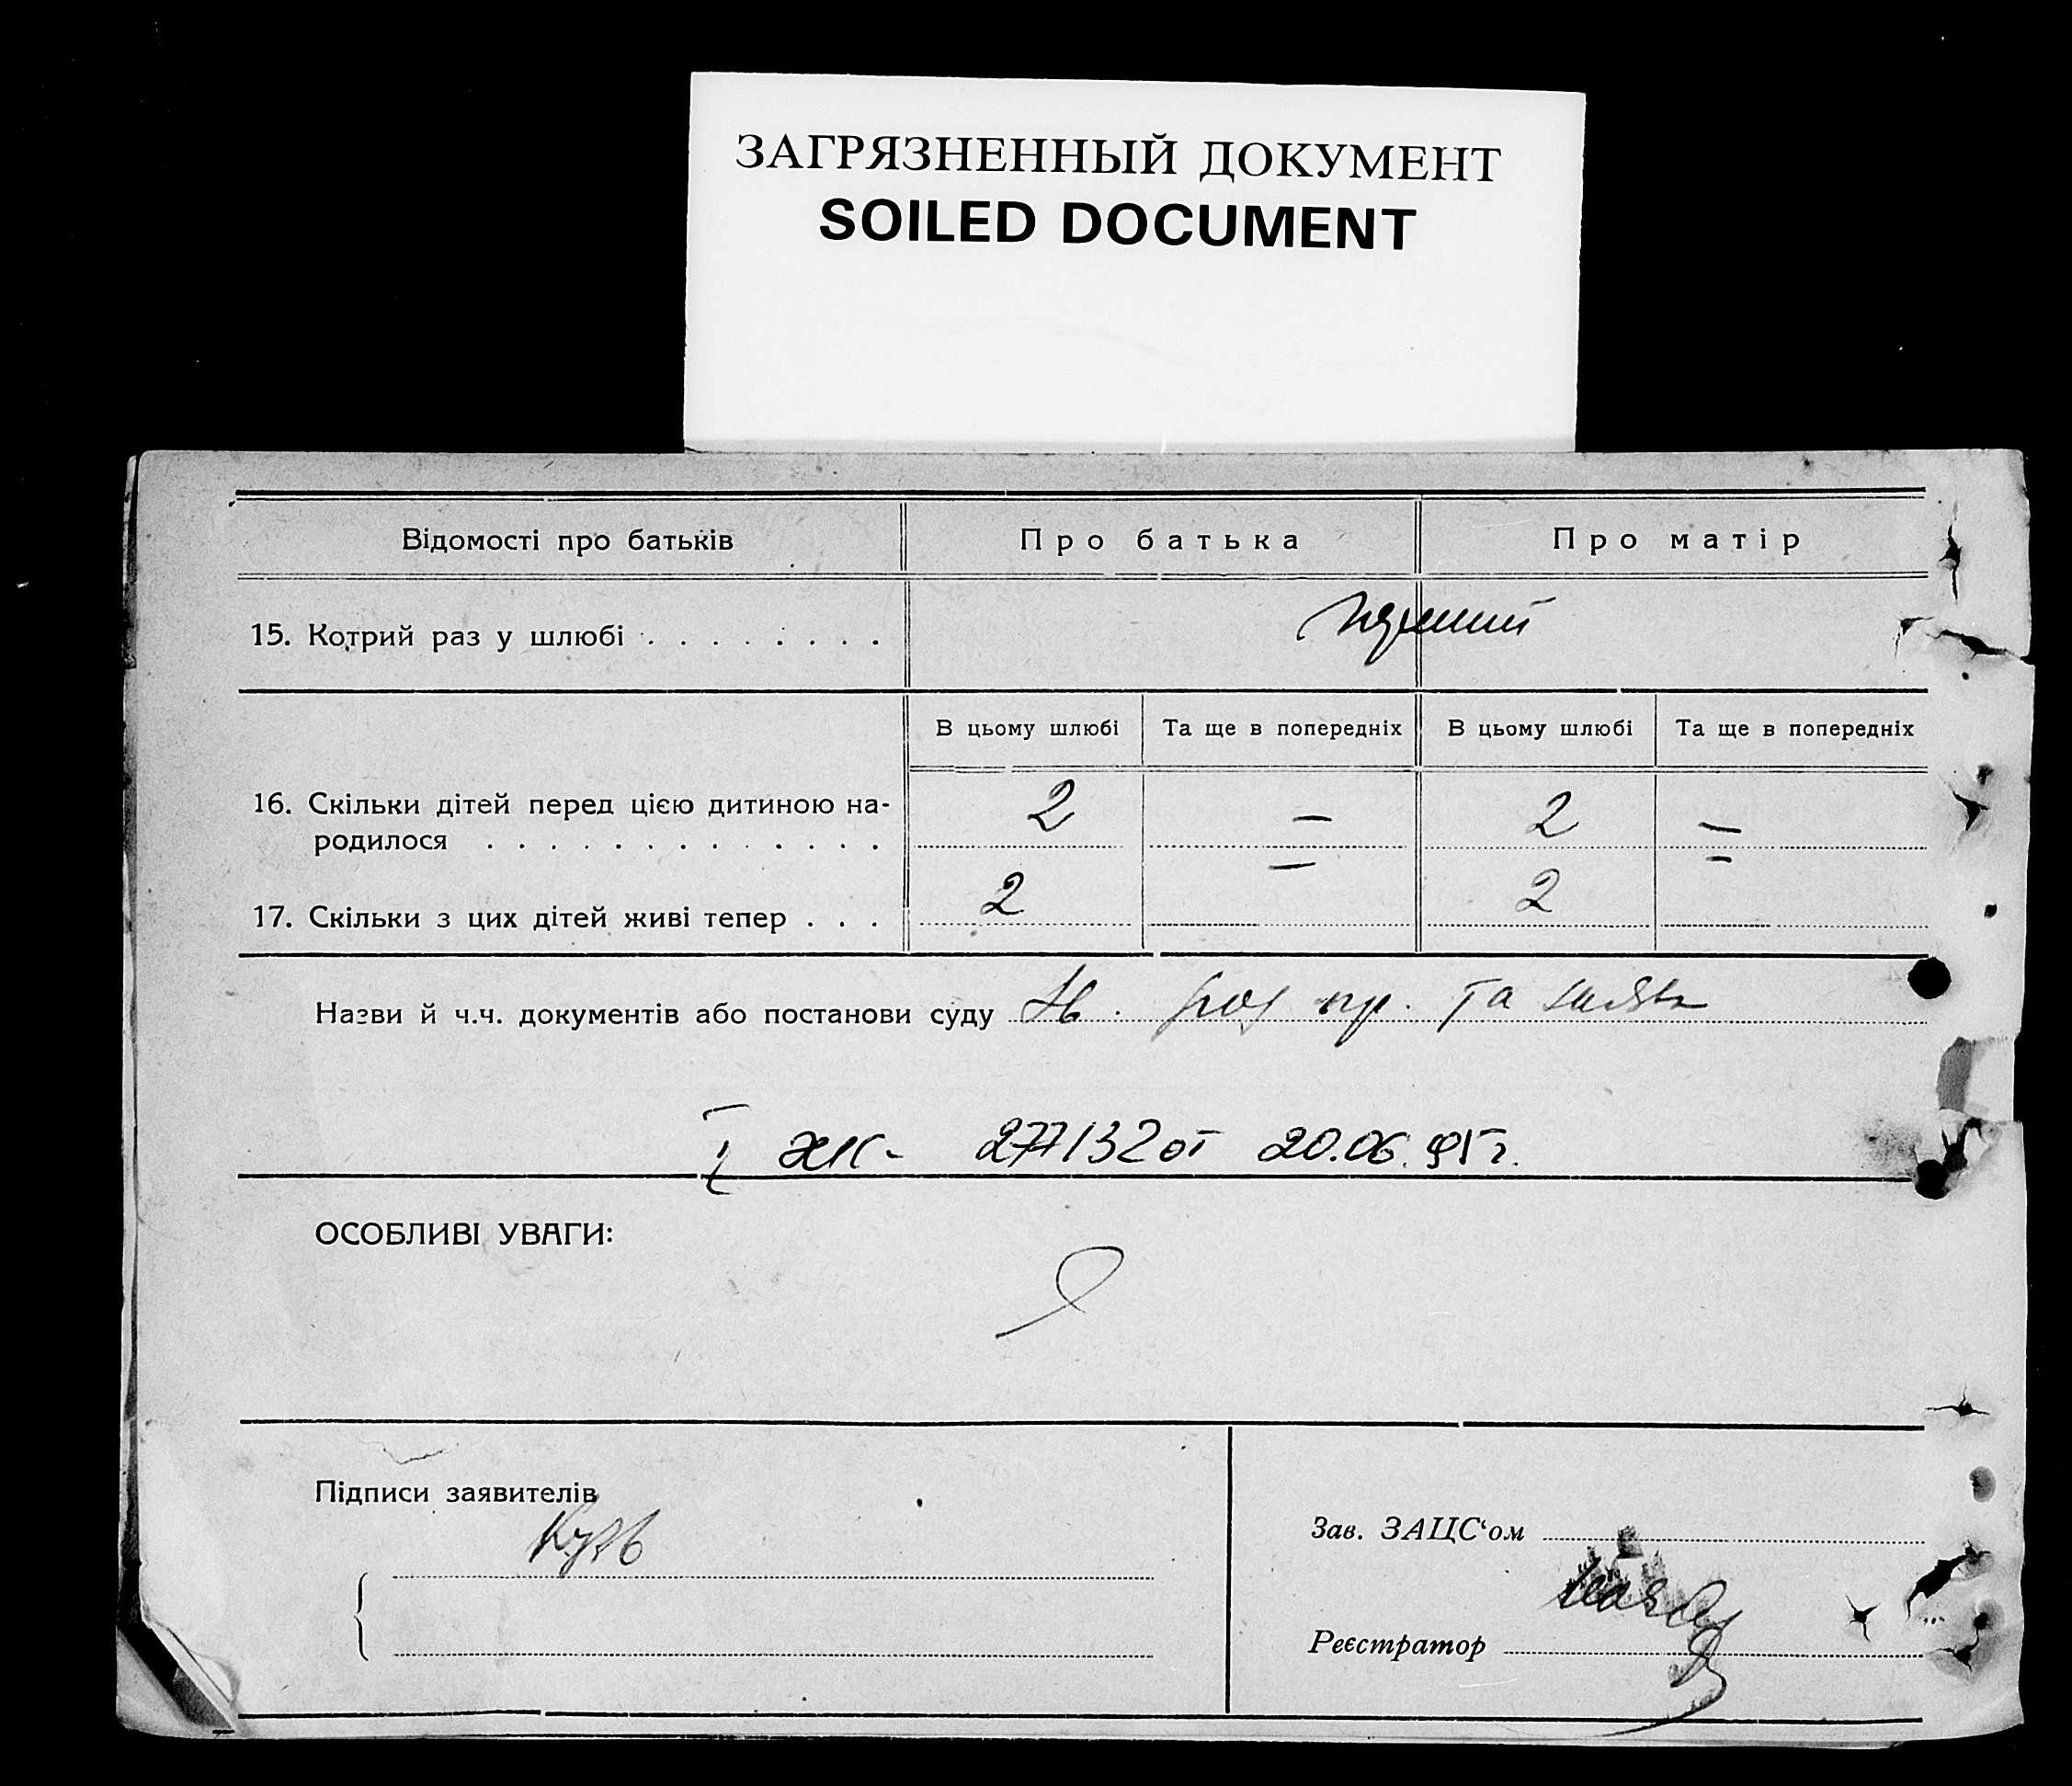 ЗАГРЯЗНЕННЫЙ ДОКУМЕНТ
SOILED DOCUMENT
Відомості про батьків Про батька Про матір
15. Котрий раз у шлюбі . . . . . . . . перший
В цьому шлюбі Та ще в попередніх В цьому шлюбі Та ще в попередніх
16. Скільки дітей перед цією дитиною на-
родилося . . . . . . . . . . . . . 2 — 2 —
17. Скільки з цих дітей живі тепер . . . 2 — 2 —
Назви й ч.ч. документів або постанови суду пр. та
I ЖК - 277132 от 20.06.95 г.
ОСОБЛИВІ УВАГИ:
Підписи заявителів
Зав. ЗАЦС'ом
Реєстратор